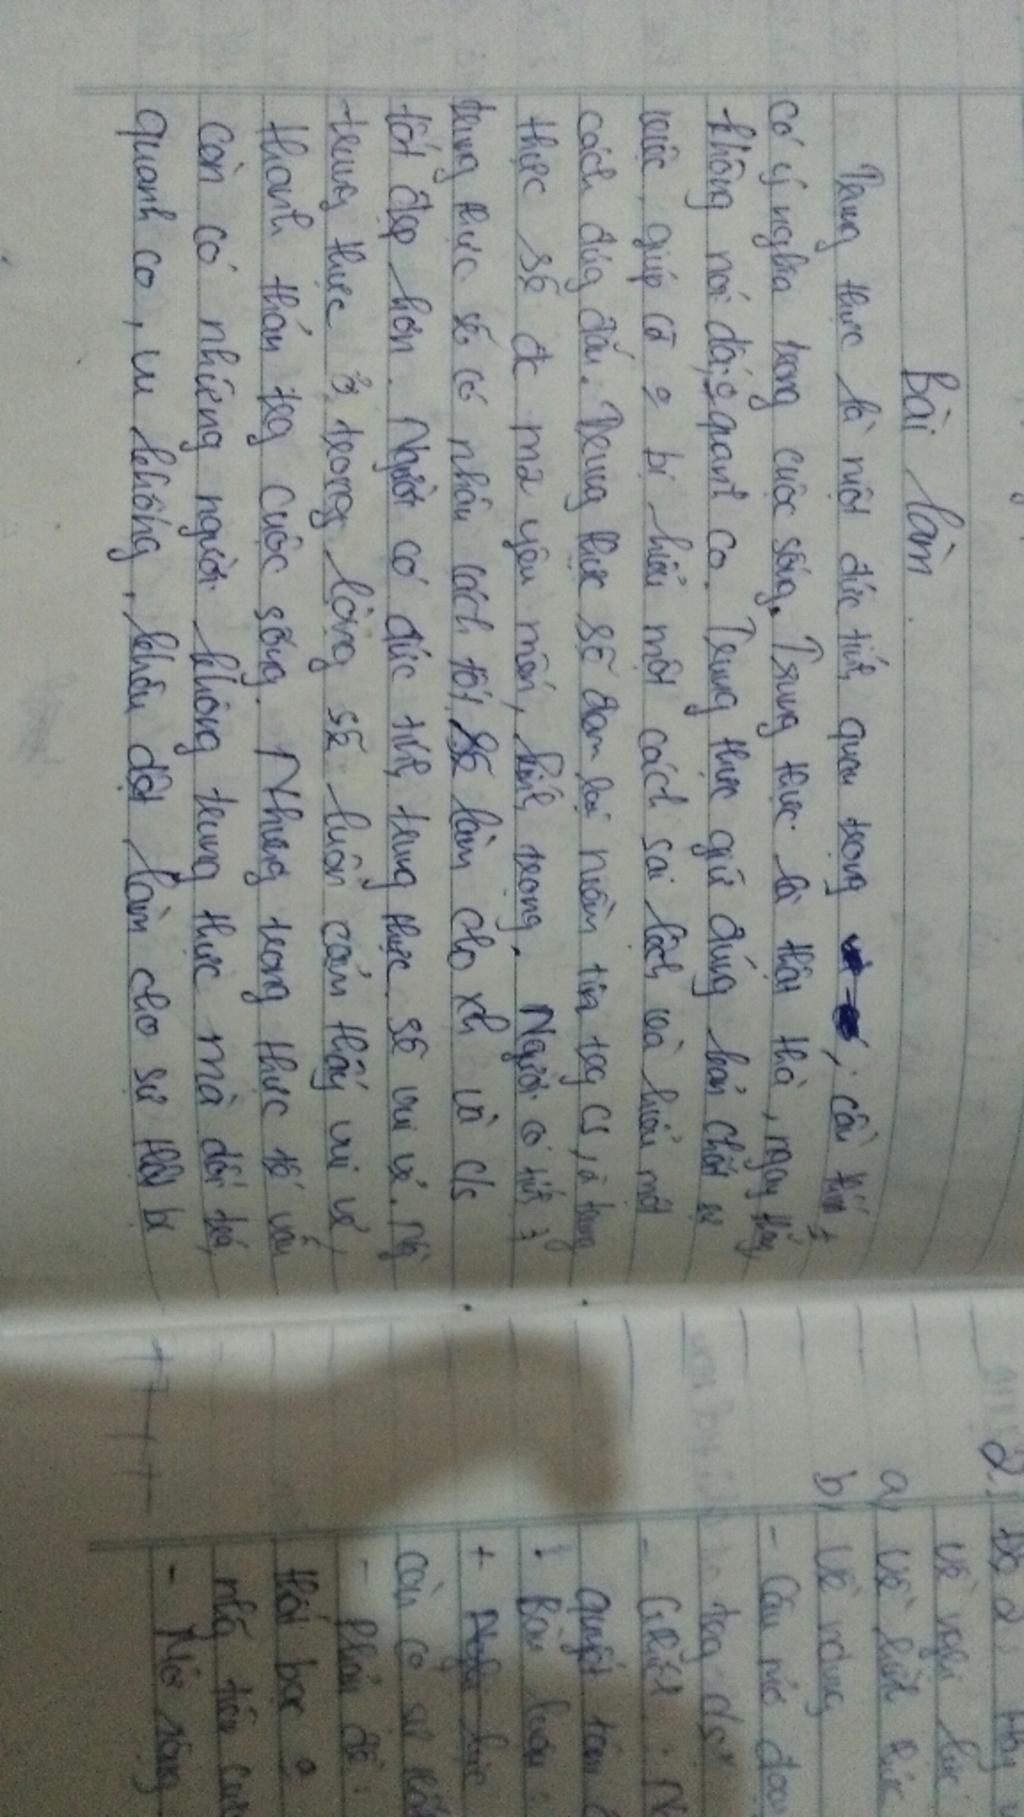 Bài làm.
Trung thực là một đức tính quan trọng, cần thiết,
có ý nghĩa trong cuộc sống. Trung thực là thật thà, ngay thẳng,
không nói dối, o quanh co. Trung thực giữ đúng bản chất sự
việc, giúp ta o bị hiểu một cách sai lệch và hiểu một
cách đúng đắn. Trung thực sẽ đem lại niềm tin trg cs, trung
thực sẽ đc mn yêu mến, kính trọng. Người có tính
trung thực sẽ có nhân cách tốt, sẽ làm cho xh và c/s
tốt đẹp hơn. Người có đức tính trung thực sẽ vui vẻ.
trung thực ở trong lòng sẽ luôn cảm thấy vui vẻ,
thanh thản trg cuộc sống. Nhưng trong thực tế vẫn
còn có những người không trung thực mà dối trá,
quanh co, vu khống, khâu dột làm cho sự thật bị
2.
a)
b)
về nghị lực
về hình thức
về ndung
- Câu mở đoạn
trg c/s
- Giải :
quyết tâm
+ Bàn luận :
+ Nghị lực
cần có sự
- Phản đề :
thất bại o
- Mở rộng